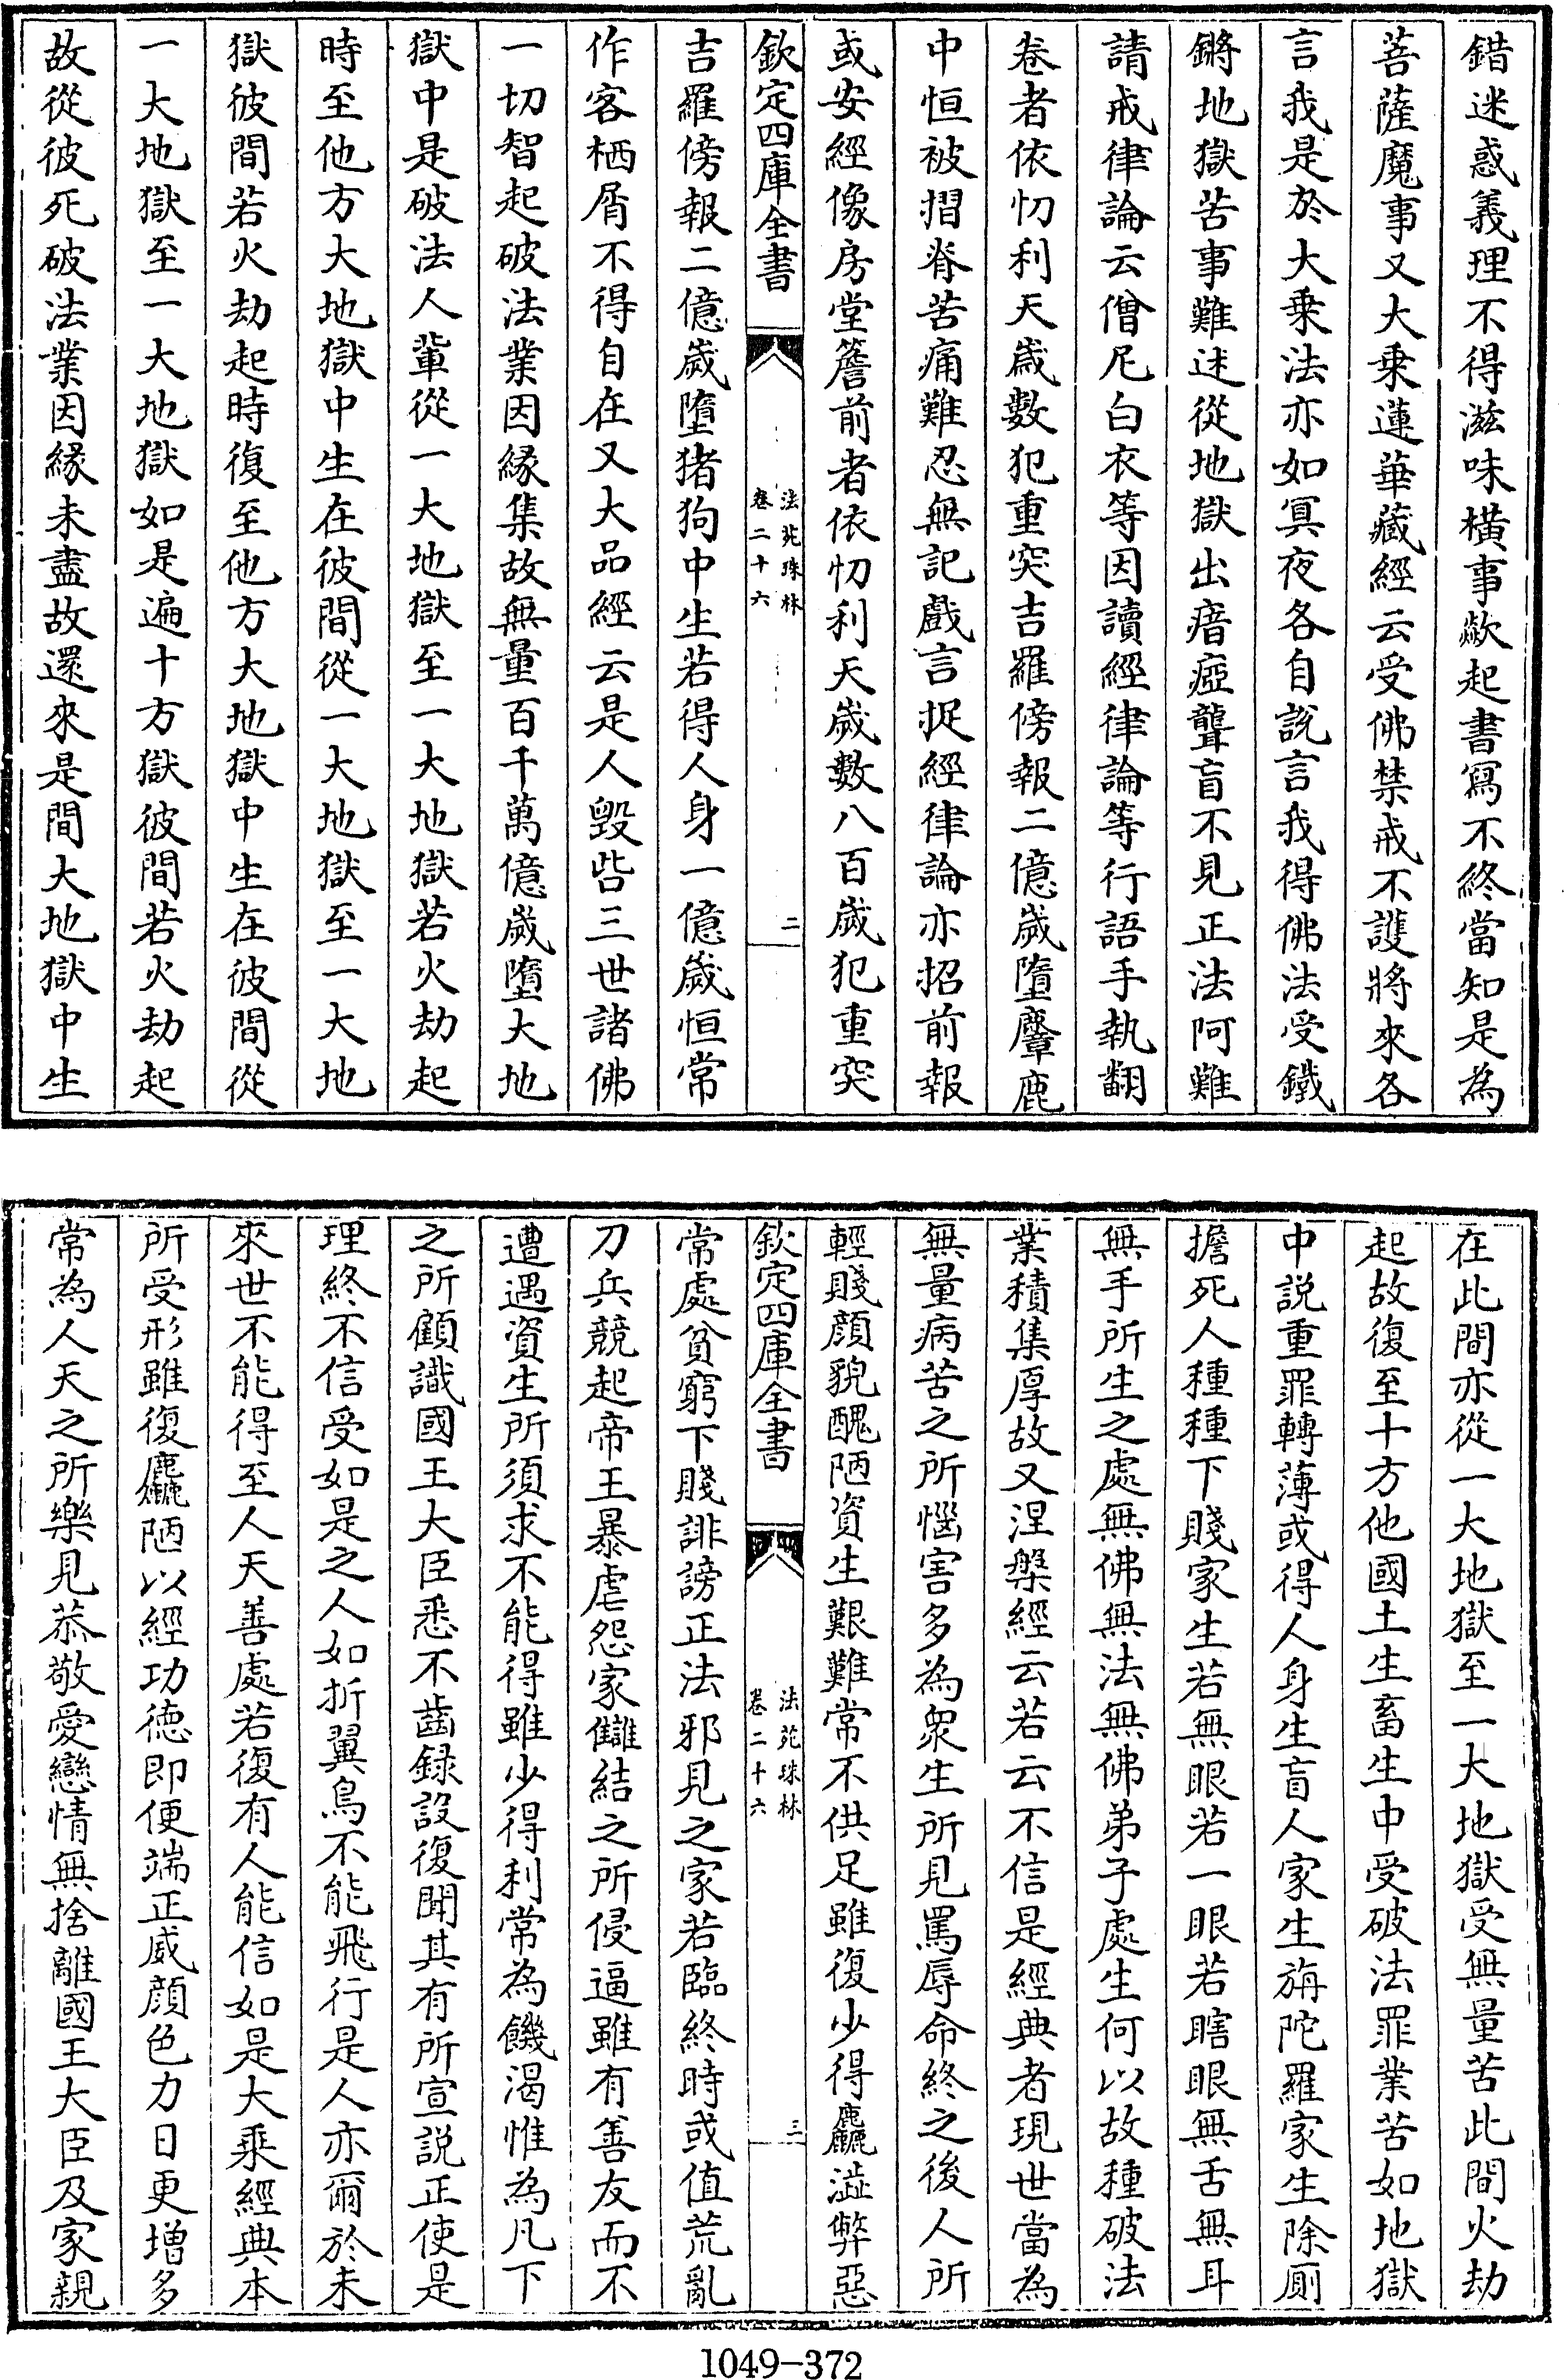 錯迷惑義理不得滋味橫事歘起書寫不終當知是為
菩薩魔事又大乗蓮華藏經云受佛禁戒不護將來各
言我是於大乗法亦如冥夜各自說言我得佛法受鐵
鏘地獄苦事難述從地獄出瘖瘂聾盲不見正法阿難
請戒律論云僧尼白衣等因讀經律論等行語手執翻
卷者依忉利天歲數犯重突吉羅傍報二億歲墮麞鹿
中恒被摺脊苦痛難忍無記戲言捉經律論亦招前報
或安經像房堂簷前者依忉利天歲數八百歲犯重突
欽定四庫全書
法苑珠林
卷二十六
二
吉羅傍報二億歲墮猪狗中生若得人身一億歲恒常
作客栖屑不得自在又大品經云是人毀呰三世諸佛
一切智起破法業因緣集故無量百千萬億歲墮大地
獄中是破法人輩從一大地獄至一大地獄若火劫起
時至他方大地獄中生在彼間從一大地獄至一大地
獄彼間若火劫起時復至他方大地獄中生在彼間從
一大地獄至一大地獄如是遍十方獄彼間若火劫起
故從彼死破法業因緣未盡故還來是間大地獄中生
在此間亦從一大地獄至一大地獄受無量苦此間火劫
起故復至十方他國土生畜生中受破法罪業苦如地獄
中説重罪轉薄或得人身生盲人家生旃陀羅家生除厠
擔死人種種下賤家生若無眼若一眼若瞎眼無舌無耳
無手所生之處無佛無法無佛弟子處生何以故種破法
業積集厚故又涅槃經云若云不信是經典者現世當為
無量病苦之所惱害多為衆生所見罵辱命終之後人所
輕賤顔貌醜陋資生艱難常不供足雖復少得麤澁弊惡
欽定四庫全書
法苑珠林
卷二十六
三
常處貧窮下賤誹謗正法邪見之家若臨終時或值荒亂
刀兵競起帝王暴虐怨家讎結之所侵逼雖有善友而不
遭遇資生所須求不能得雖少得利常為饑渴惟為凡下
之所顧識國王大臣悉不齒録設復聞其有所宣説正使是
理終不信受如是之人如折翼鳥不能飛行是人亦爾於未
來世不能得至人天善處若復有人能信如是大乗經典本
所受形雖復麤陋以經功徳即便端正威顔色力日更增多
常為人天之所樂見恭敬愛戀情無捨離國王大臣及家親
1049-372